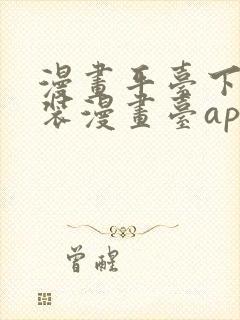 漫畫平臺下
裝漫畫臺ap
曾醒